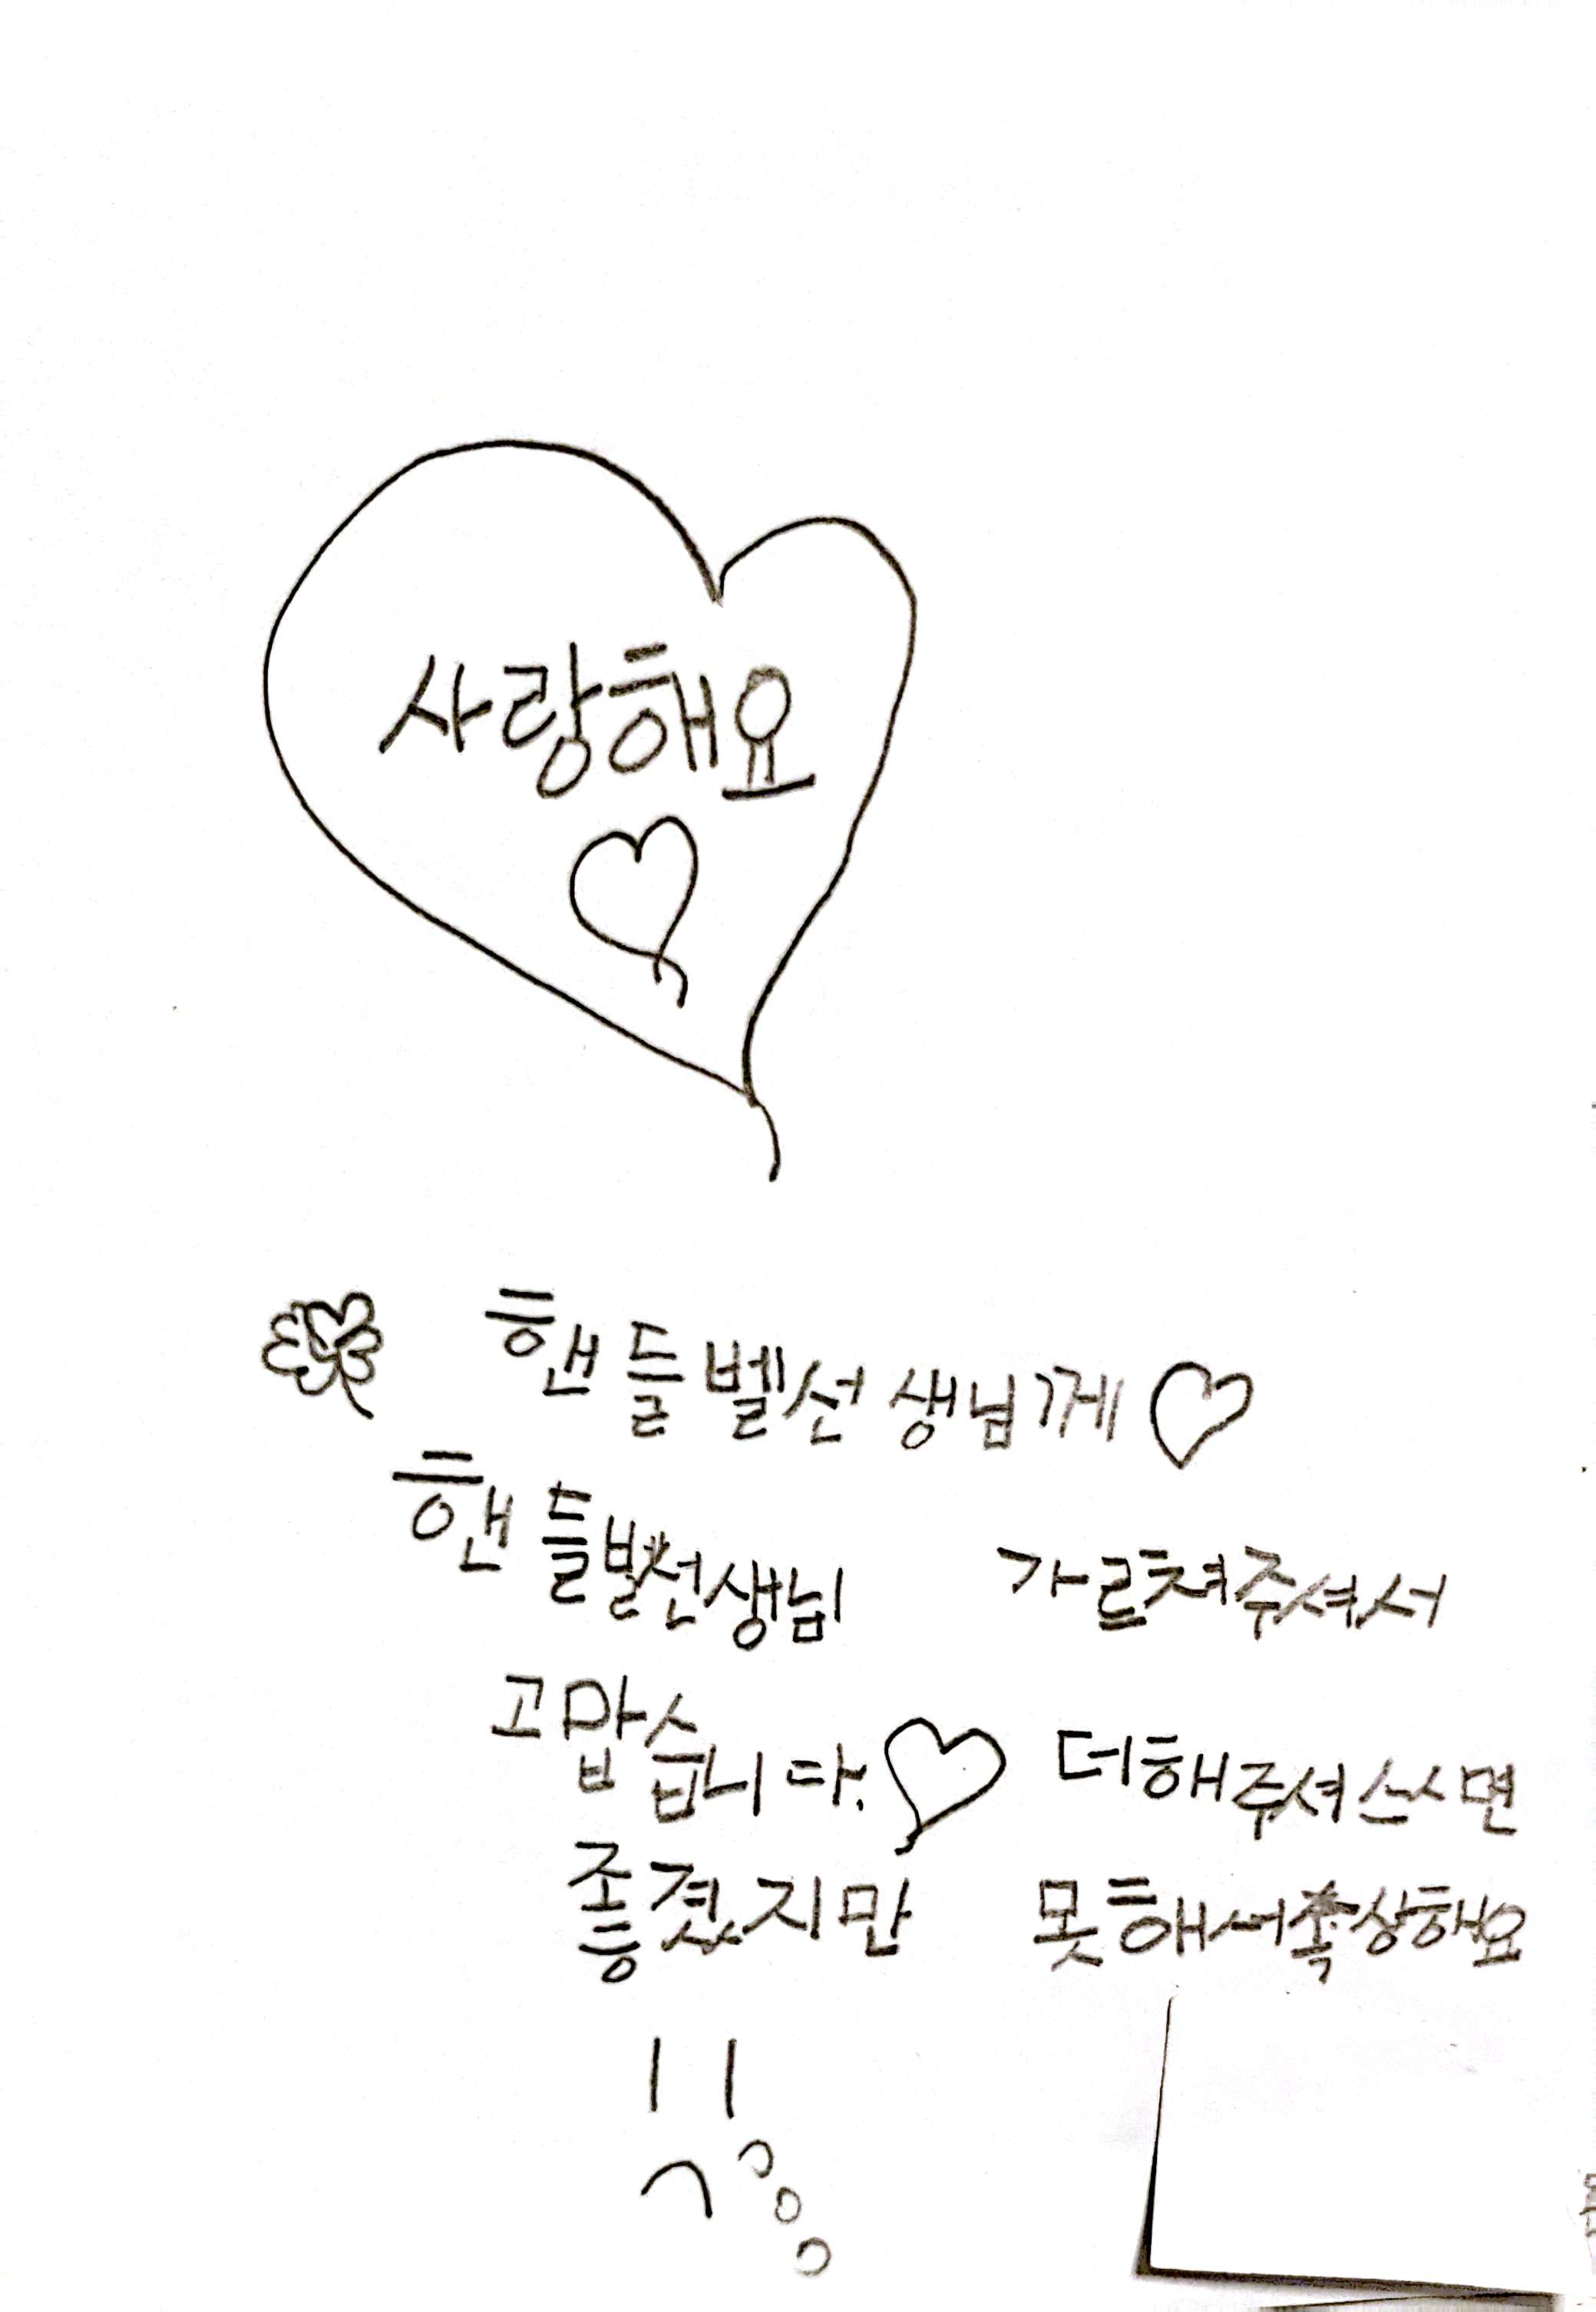 사랑해요
핸들벨선생님께
핸들벨선생님 가르쳐주셔서
고맙습니다. 더해주셔스시면
좋겠지만 못해서속상해요